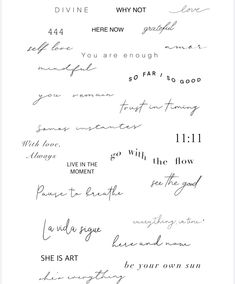 DIVINE
WHY NOT
love
444
HERE NOW
grateful
self love
amor
You are enough
mindful
SO FAR I SO GOOD
you woman
trust in timing
Somos instantes
11:11
With love,
Always
go with the flow
LIVE IN THE
MOMENT
see the good
Pause to breathe
La vida sigue
everything in time
here and now
SHE IS ART
be your own sun
she's everything